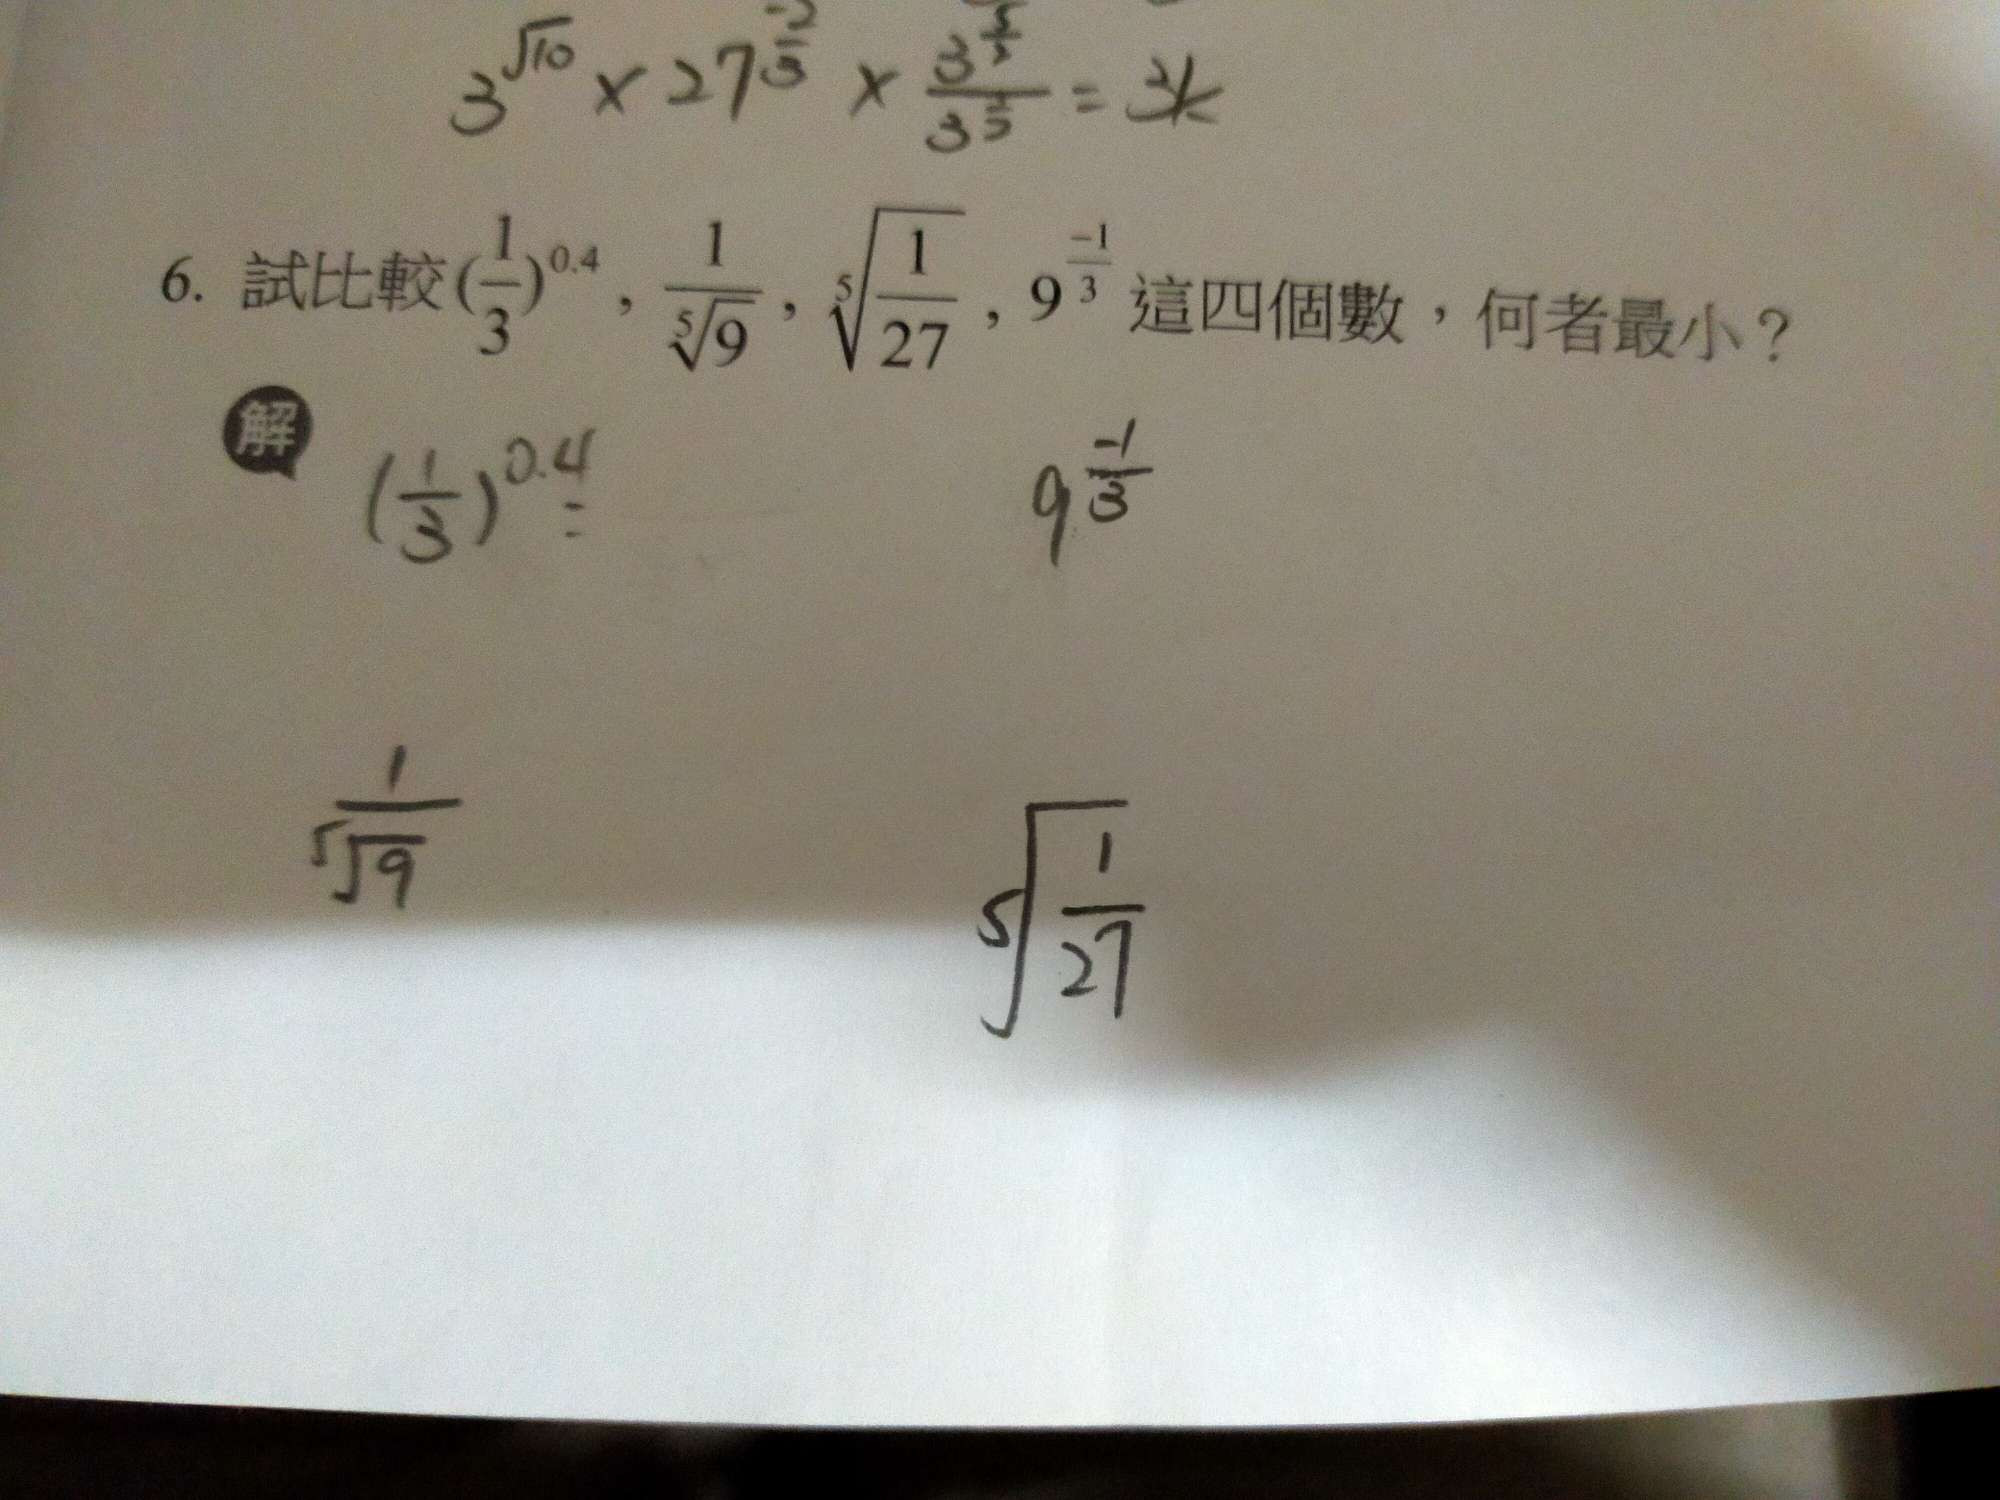 3^√10 × 27^(-2/3) × = 3^k
6. 試比較(1/3)^0.4, 1/⁵√9, ⁵√(1/27), 9^(-1/3) 這四個數，何者最小？
解
(1/3)^0.4 = 9^(-1/3)
1/⁵√9 ⁵√(1/27)